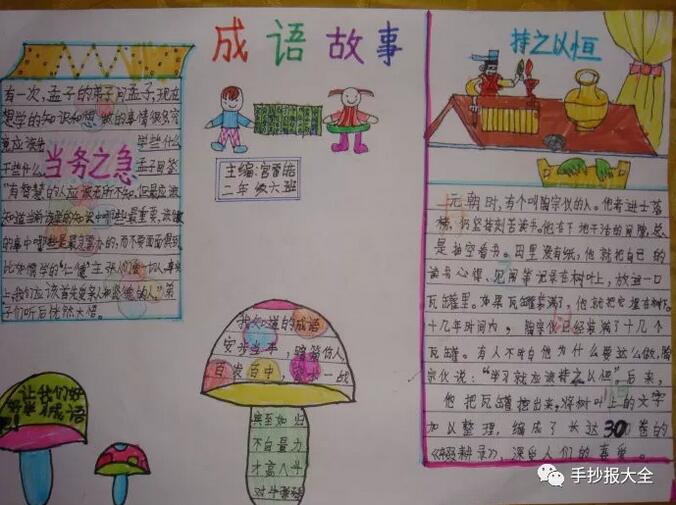 成语故事
有一次,孟子的弟子问孟子,现在
想学的知识和想做的事情很多究
竟应该先学些什么
干些什么孟子回答
当务之急
"有智慧的人应该无所不知,但最应该
知道当前该
的知识中哪些最重要,该做
的事中哪些是最
要办的,而不要面面俱到
比如懂学的"仁德"主张人们
一切人,事实
上,我们应该首先爱亲人和
的人"弟
子们听后恍然大悟。
主编:宫
二年级六班
我知道的成语
安步当车,
百发百中,
一战
宾至如归
不自量力
才高八斗
对牛弹琴
让我们好
好学习成语
吧!
持之以恒
元朝时,有个叫陶宗仪的人。他考进士落
榜,仍坚持刻苦读书。他在下地干活的间隙,总
是抽空看书。田里没有纸,他就把自己的
读书心得、见闻等记录在树叶上,放进一口
瓦罐里。如果瓦罐装满了,他就把它埋在树下。
十几年时间内,陶宗仪已经装满了十几个
瓦罐。有人不明白他为什么要这么做,陶
宗仪说:"学习就应该持之以恒"后来,
他把瓦罐挖出来,将树叶上的文字
加以整理,编成了长达30卷的
《辍耕录》,深受人们的喜爱。
手抄报大全